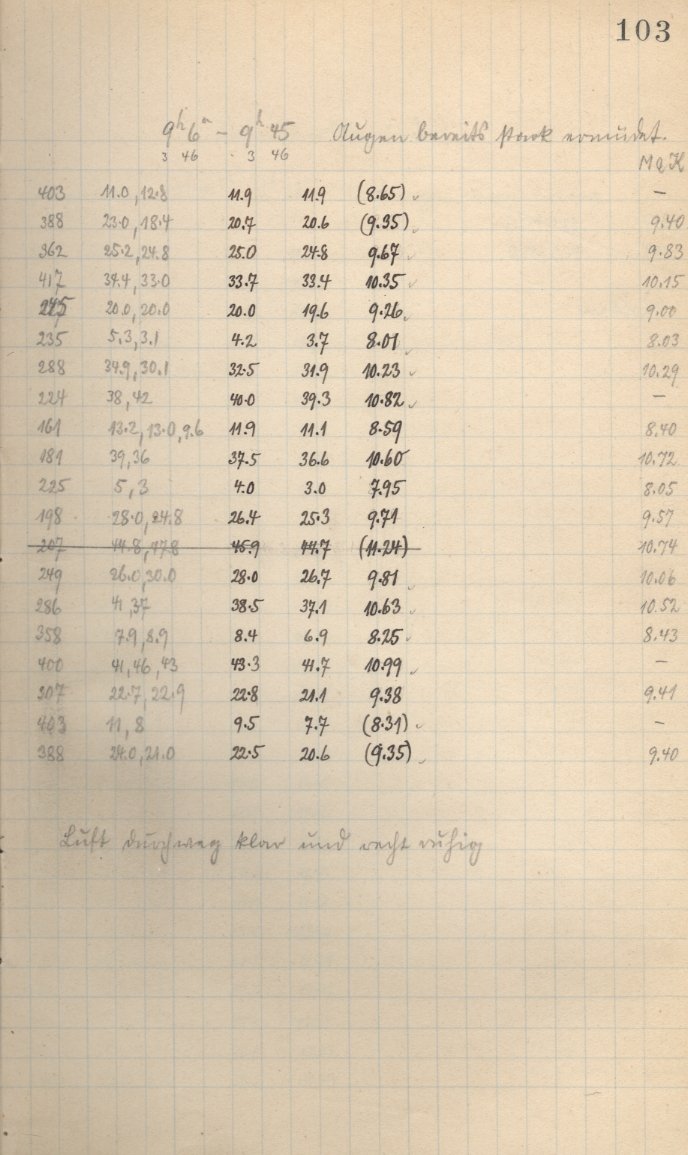 103
9h 6m – 9h 45 Augen bereits stark ermüdet.
3 46 3 46
M a K
403 11.0, 12.8 11.9 11.9 (8.65) –
388 23.0, 18.4 20.7 20.6 (9.35) 9.40
362 25.2, 24.8 25.0 24.8 9.67 9.83
417 34.4, 33.0 33.7 33.4 10.35 10.15
245 20.0, 20.0 20.0 19.6 9.26 9.00
235 5.3, 3.1 4.2 3.7 8.01 8.03
288 34.9, 30.1 32.5 31.9 10.23 10.29
224 38, 42 40.0 39.3 10.82 –
161 13.2, 13.0, 9.6 11.9 11.1 8.59 8.40
181 39, 36 37.5 36.6 10.60 10.72
225 5, 3 4.0 3.0 7.95 8.05
198 28.0, 24.8 26.4 25.3 9.71 9.57
207 44.8, 47.8 45.9 44.7 (11.24) 10.74
249 26.0, 30.0 28.0 26.7 9.81 10.06
286 41, 37 38.5 37.1 10.63 10.52
358 7.9, 8.9 8.4 6.9 8.25 8.43
400 41, 46, 43 43.3 41.7 10.99 –
307 22.7, 22.9 22.8 21.1 9.38 9.41
403 11, 8 9.5 7.7 (8.31) –
388 24.0, 21.0 22.5 20.6 (9.35) 9.40
Luft durchweg klar und recht ruhig